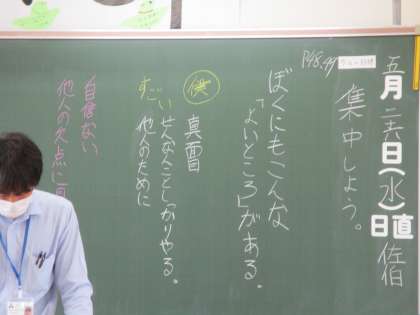 五月二六日(水)
日直 佐伯
集中しよう。
P48.49
ぼくにもこんな
「よいところ」がある。
僕
真面目
すごい
せんなことしっかりやる。
他人のために
自信ない
他人の欠点に